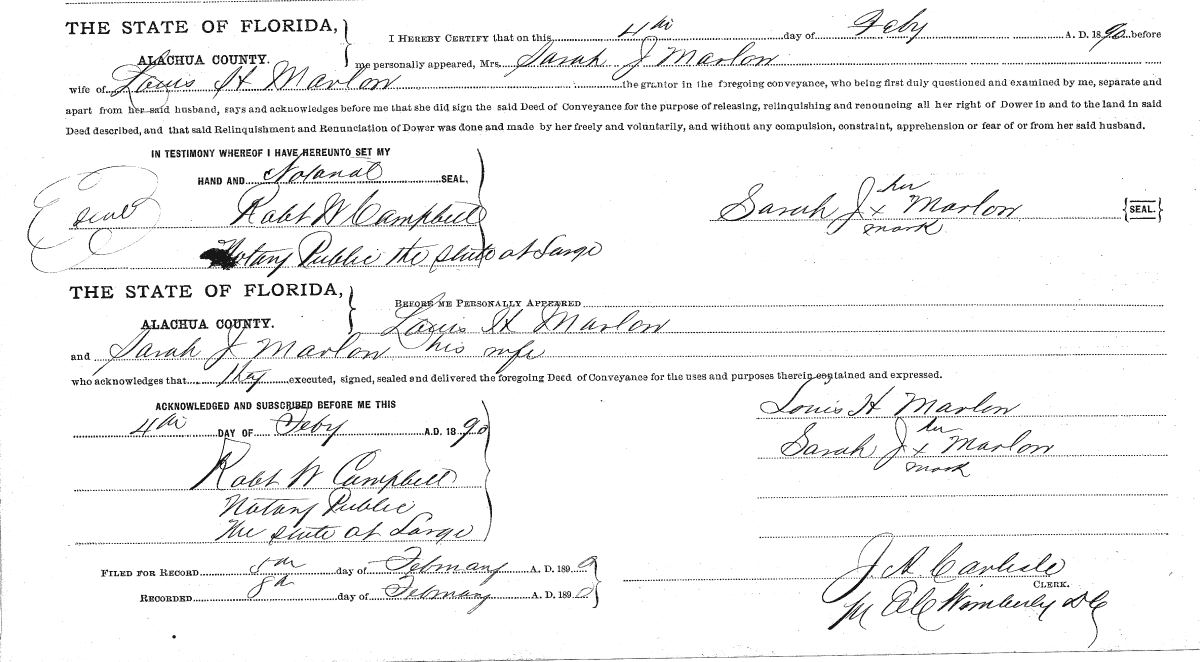 THE STATE OF FLORIDA,
ALACHUA COUNTY.
I HEREBY CERTIFY that on this 4th day of Feby A. D. 1890 before
me personally appeared, Mrs. Sarah J Marlow
wife of Louis H Marlow the grantor in the foregoing conveyance, who being first duly questioned and examined by me, separate and
apart from her said husband, says and acknowledges before me that she did sign the said Deed of Conveyance for the purpose of releasing, relinquishing and renouncing all her right of Dower in and to the land in said
Deed described, and that said Relinquishment and Renunciation of Dower was done and made by her freely and voluntarily, and without any compulsion, constraint, apprehension or fear of or from her said husband.
IN TESTIMONY WHEREOF I HAVE HEREUNTO SET MY
HAND AND Notarial SEAL.
seal
Robt W Campbell
Notary Public the state at Large
her
Sarah J x Marlow {SEAL.}
mark
THE STATE OF FLORIDA,
ALACHUA COUNTY.
BEFORE ME PERSONALLY APPEARED
Louis H Marlow
and Sarah J Marlow his wife
who acknowledges that they executed, signed, sealed and delivered the foregoing Deed of Conveyance for the uses and purposes therein contained and expressed.
ACKNOWLEDGED AND SUBSCRIBED BEFORE ME THIS
4th DAY OF Feby A.D. 1890
Robt W Campbell
Notary Public
the state at Large
Louis H Marlow
her
Sarah J x Marlow
mark
FILED FOR RECORD 8th day of February A. D. 1890
RECORDED 8th day of February A. D. 1890
J A Carlisle
CLERK.
Wimberly DC